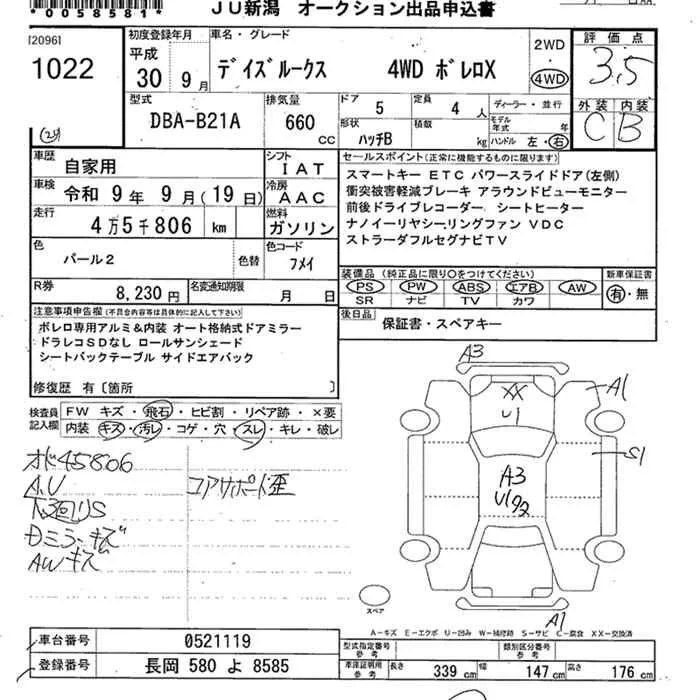 *0058581*
JU新潟 オークション出品申込書
[2096]
1022
初度登録年月
平成
30 9月
車名・グレード
デイズルークス 4WD ボレロX
2WD
4WD
評価点
3.5
外装 内装
C B
型式
DBA-B21A
排気量
660 CC
ドア 5
定員 4人
形状 ハッチB
積載 kg
ディーラー・並行
モデル年式 年
ハンドル 左・右
車歴 自家用
シフト IAT
車検 令和 9年 9月(19日)
冷房 AAC
走行 4万5千806 km
燃料 ガソリン
色 パール2 色替
色コード フメイ
R券 8,230円
名変通知期限 月 日
セールスポイント(正常に機能するものに限ります)
スマートキー ETC パワースライドドア(左側)
衝突被害軽減ブレーキ アラウンドビューモニター
前後ドライブレコーダー シートヒーター
ナノイーリヤシーリングファン VDC
ストラーダフルセグナビTV
装備品(純正品に限り○をつけてください)
新車保証書
PS PW ABS エアB AW
有・無
SR ナビ TV カワ
後日品 保証書・スペアキー
注意事項申告欄(不具合内容等は具体的に記入して下さい)
ボレロ専用アルミ&内装 オート格納式ドアミラー
ドラレコSDなし ロールサンシェード
シートバックテーブル サイドエアバック
修復歴 有〔箇所 〕
検査員記入欄
FW キズ・飛石・ヒビ割・リペア跡・×要
内装 キズ・汚レ・コゲ・穴・スレ・キレ・破レ
45806
A.U
コアサポート歪
下廻りS
ミラーキズ
AWキズ
A3
XX
U1
A1
S1
A3
A1
スペア
A-キズ E-エクボ U-凹み W-補修跡 S-サビ C-腐食 XX-交換済
車台番号 0521119
登録番号 長岡 580 よ 8585
型式指定番号 参考
類別区分番号 参考
車庫証明用 参考 長さ 339 cm 幅 147 cm 高さ 176 cm